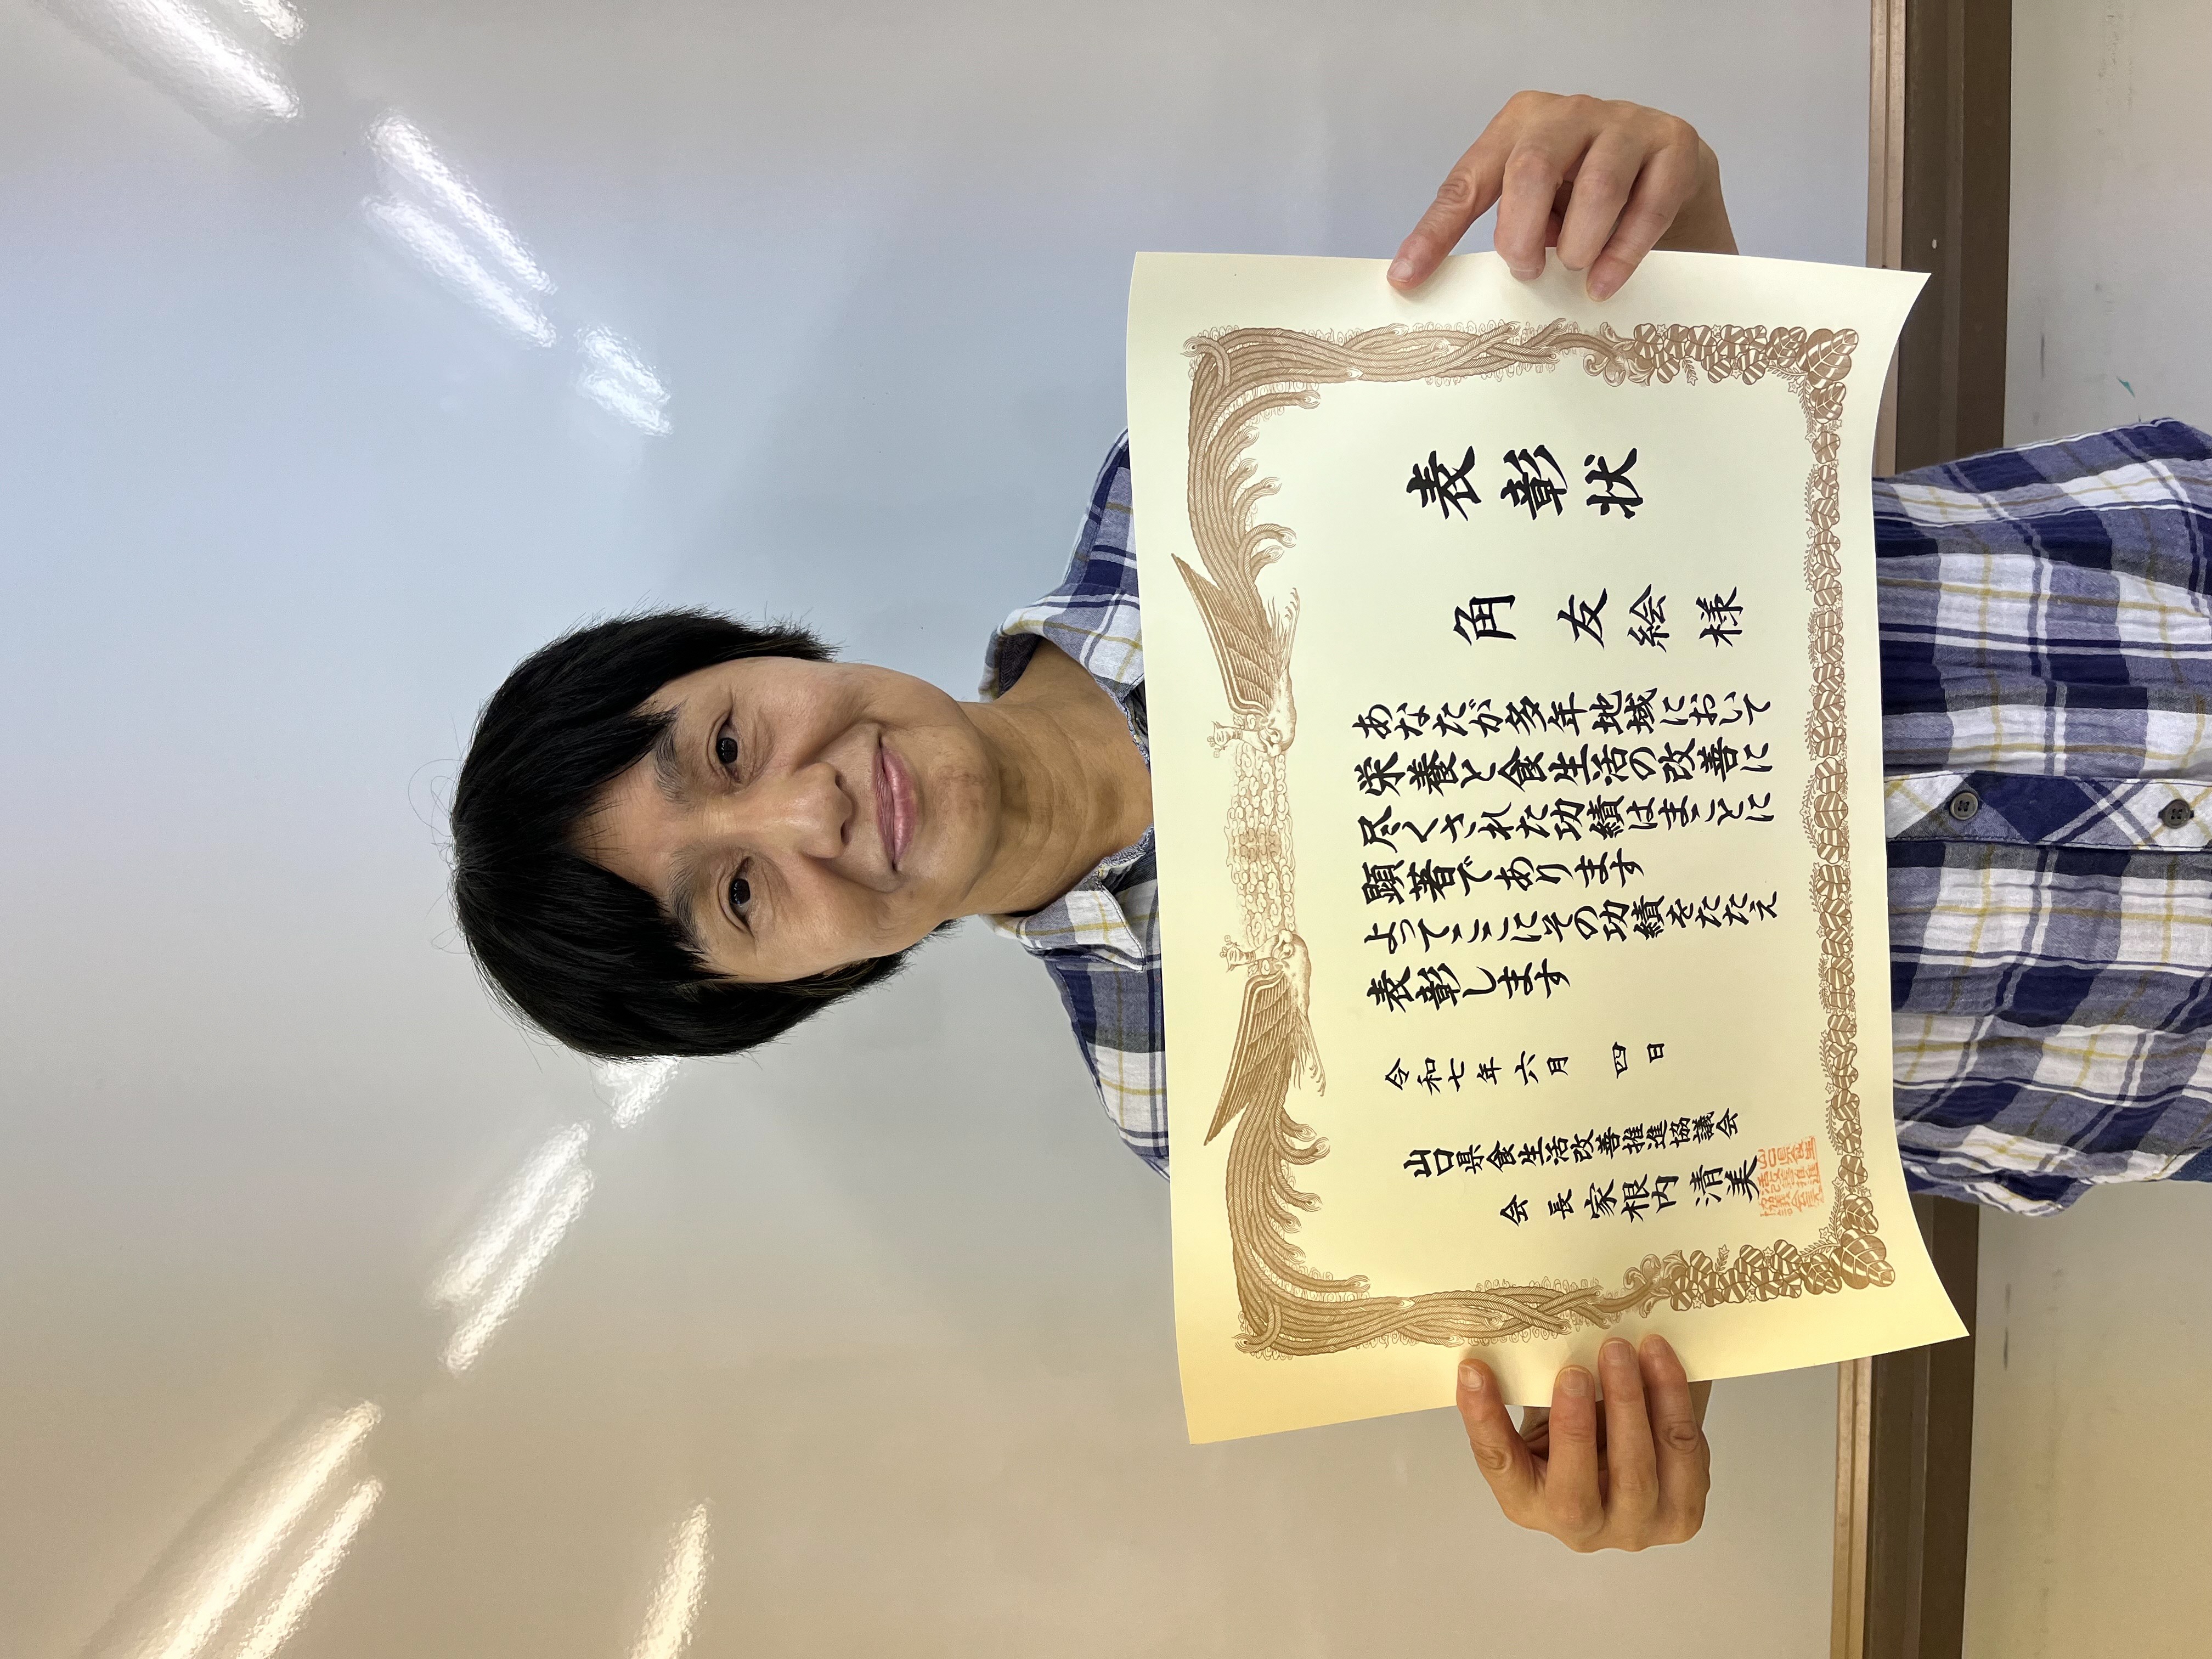 表彰状
角 友絵 様
あなたが多年地域において
栄養と食生活の改善に
尽くされた功績はまことに
顕著であります
よってここにその功績をたたえ
表彰します
令和七年六月 四日
山口県食生活改善推進協議会
会 長 家根内 清美